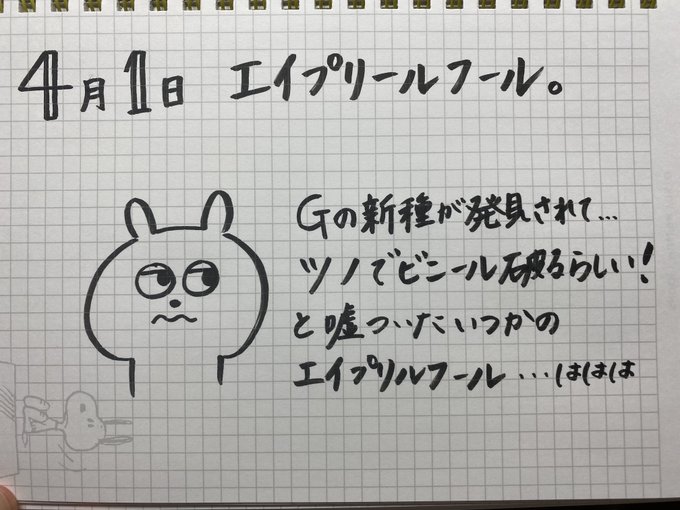 4月1日 エイプリールフール。
Gの新種が発見されて...
ツノでビニール破るらしい!
と嘘ついたいつかの
エイプリルフール...ははは